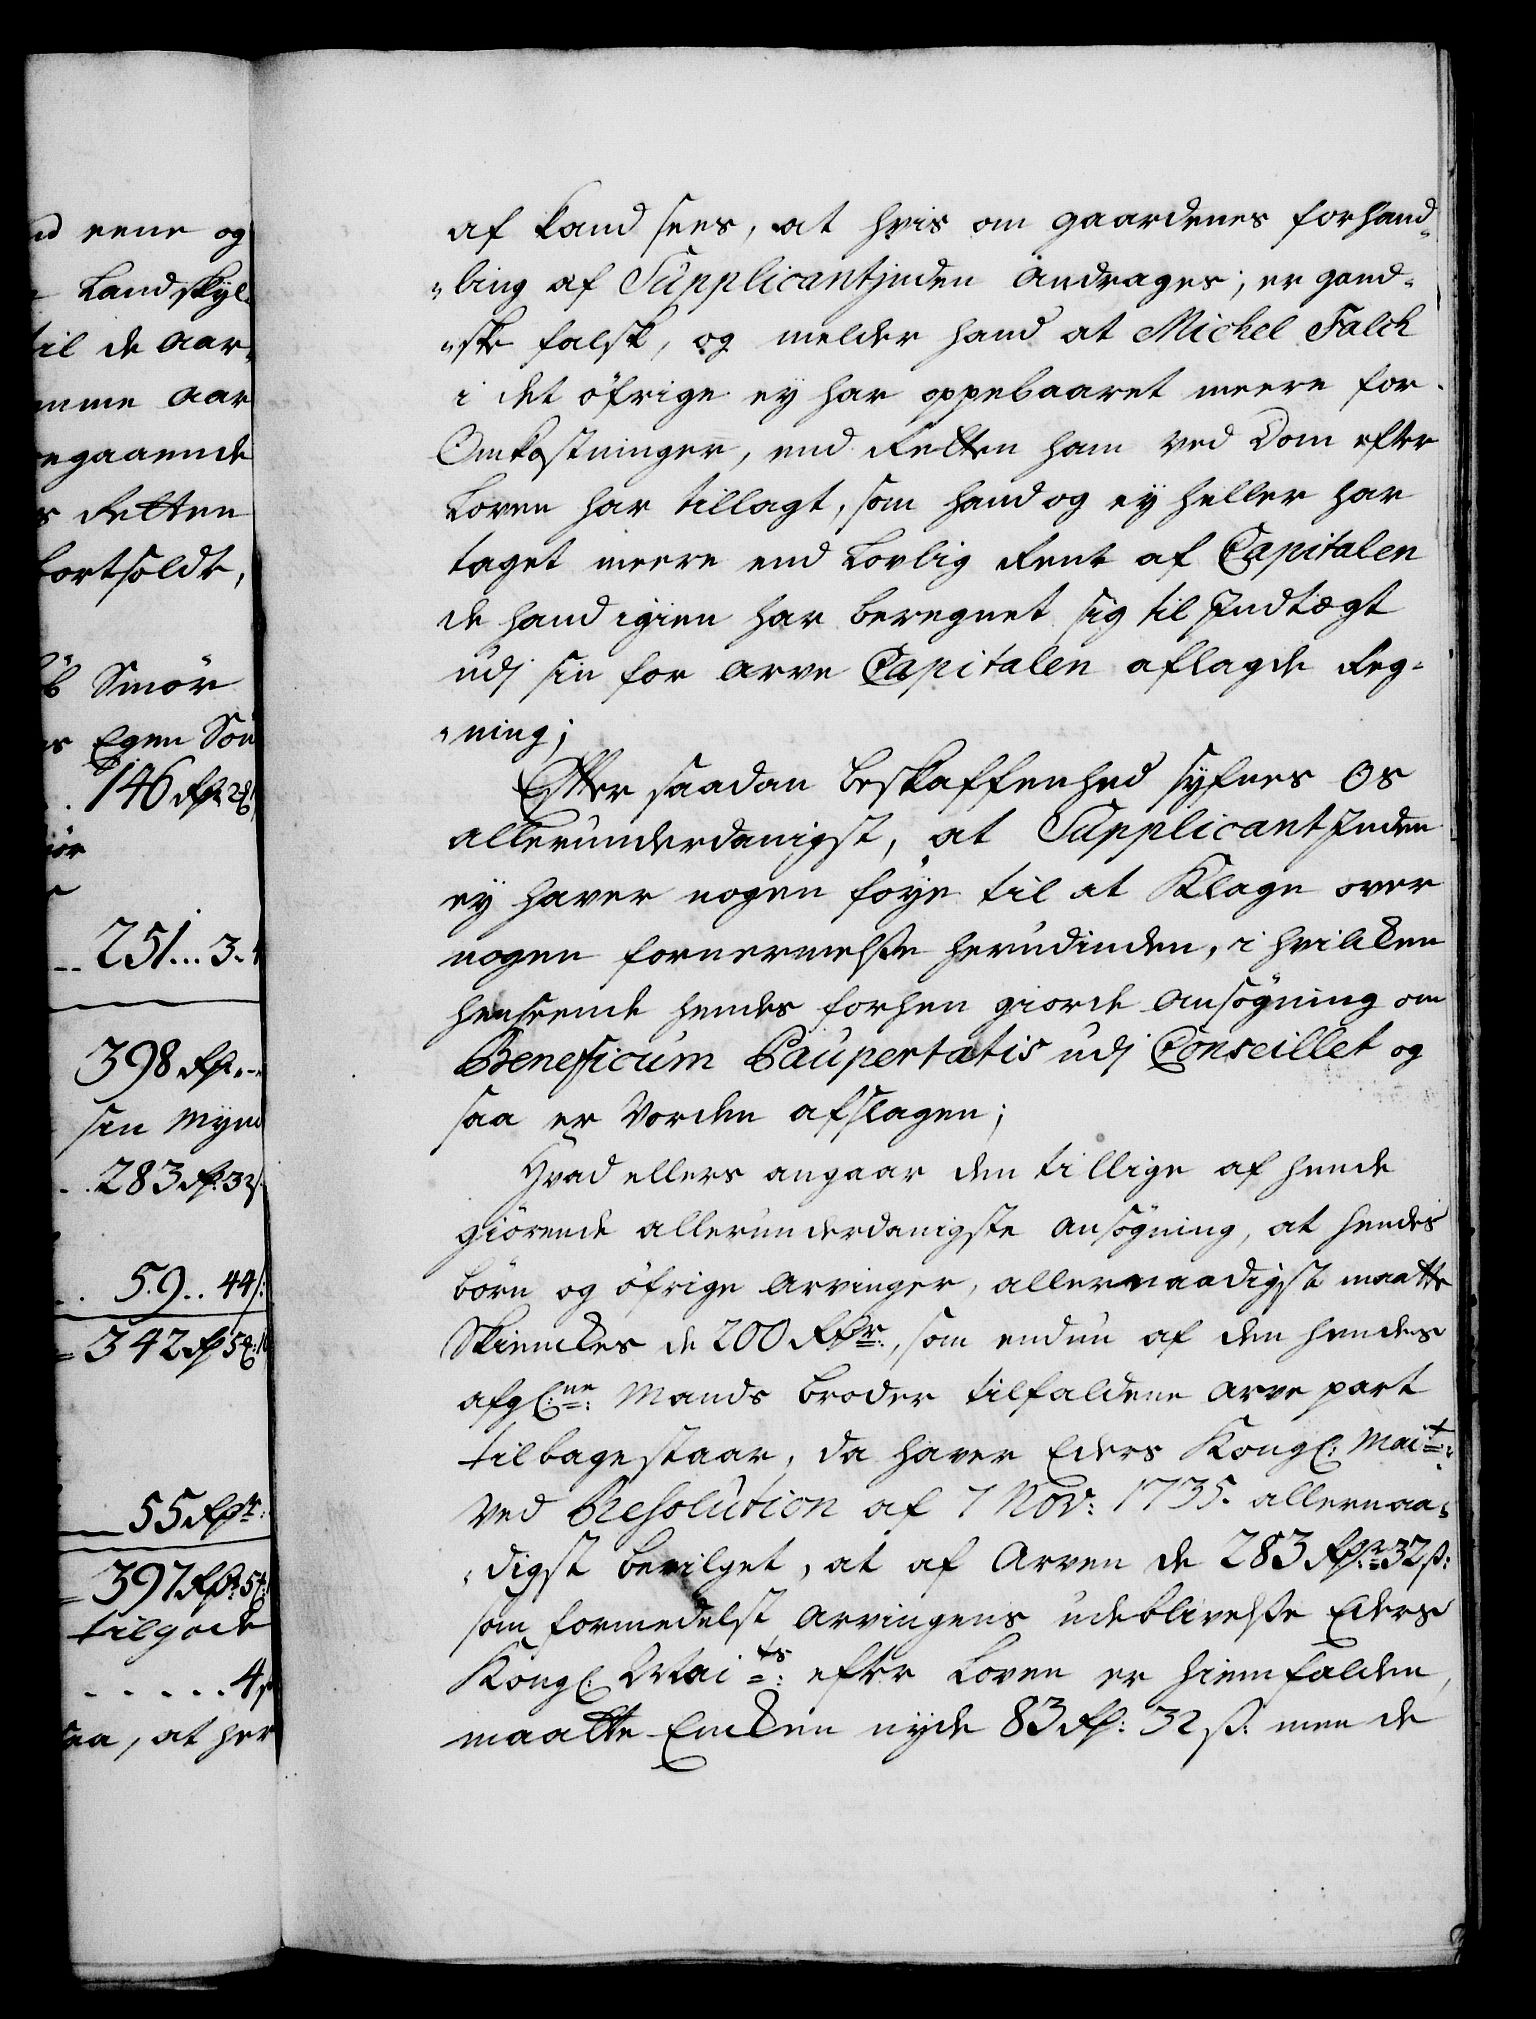 eene og
Landskyl
til de Aar
Aar
egaaende
Retten
bortsoldt,
Smör
Egen Sön
146 Rd
251...3.
398 Rd
sin Mynd
283 Rd: 32 s.
59..44 s:
342 Rd
55 Rdr:
397 Rd:
tilgode
.....4 s
at her
af kand sees, at hvis om gaardenes forhand„
„ling af Supplicantjnden andrages, er gand„
„ske falsk, og melder hand at Michel Falch
i det öfrige ey har oppebaaret meere for
Omkostninger, end Retten ham ved Dom efter
Loven har tillagt, som hand og ey heller har
taget meere end Lovlig Rente af Capitalen
de hand igien har beregnet sig til Indtægt
udj sin for arve Capitalen aflagde Reg„
„ning;
Efter saadan beskaffenhed syfnes Os
allerunderdanigst, at SupplicantInden
ey haver nogen föye til at Klage over
nogen fornermelsse herudinden, i hvilcken
henseende hendes forhen giorde Ansögning om
Beneficum Paupertatis udj Conseillet og
saa er vorden afslagen;
Hvad ellers angaar den tillige af hende
giörende allerunderdanigste ansögning, at hendes
börn og öfrige Arvinger, allernaadigst maatte
Skienckes de 200 Rdr:, som endnu af den hendes
afgl:ne: Mands broder tilfaldene Arve part
tilbagestaar, da haver Eders Kongl: Mait:
ved Resolution af 7 Nov: 1735. allernaa„
„digst bevilget, at af Arven de 283 Rdr: 32 ß:
som formedelst Arvingens udeblivelsse Eders
Kongl: Maits: efter Loven er hiemfalden,
maatte Encken nyde 83 Rd: 32 ß: men de